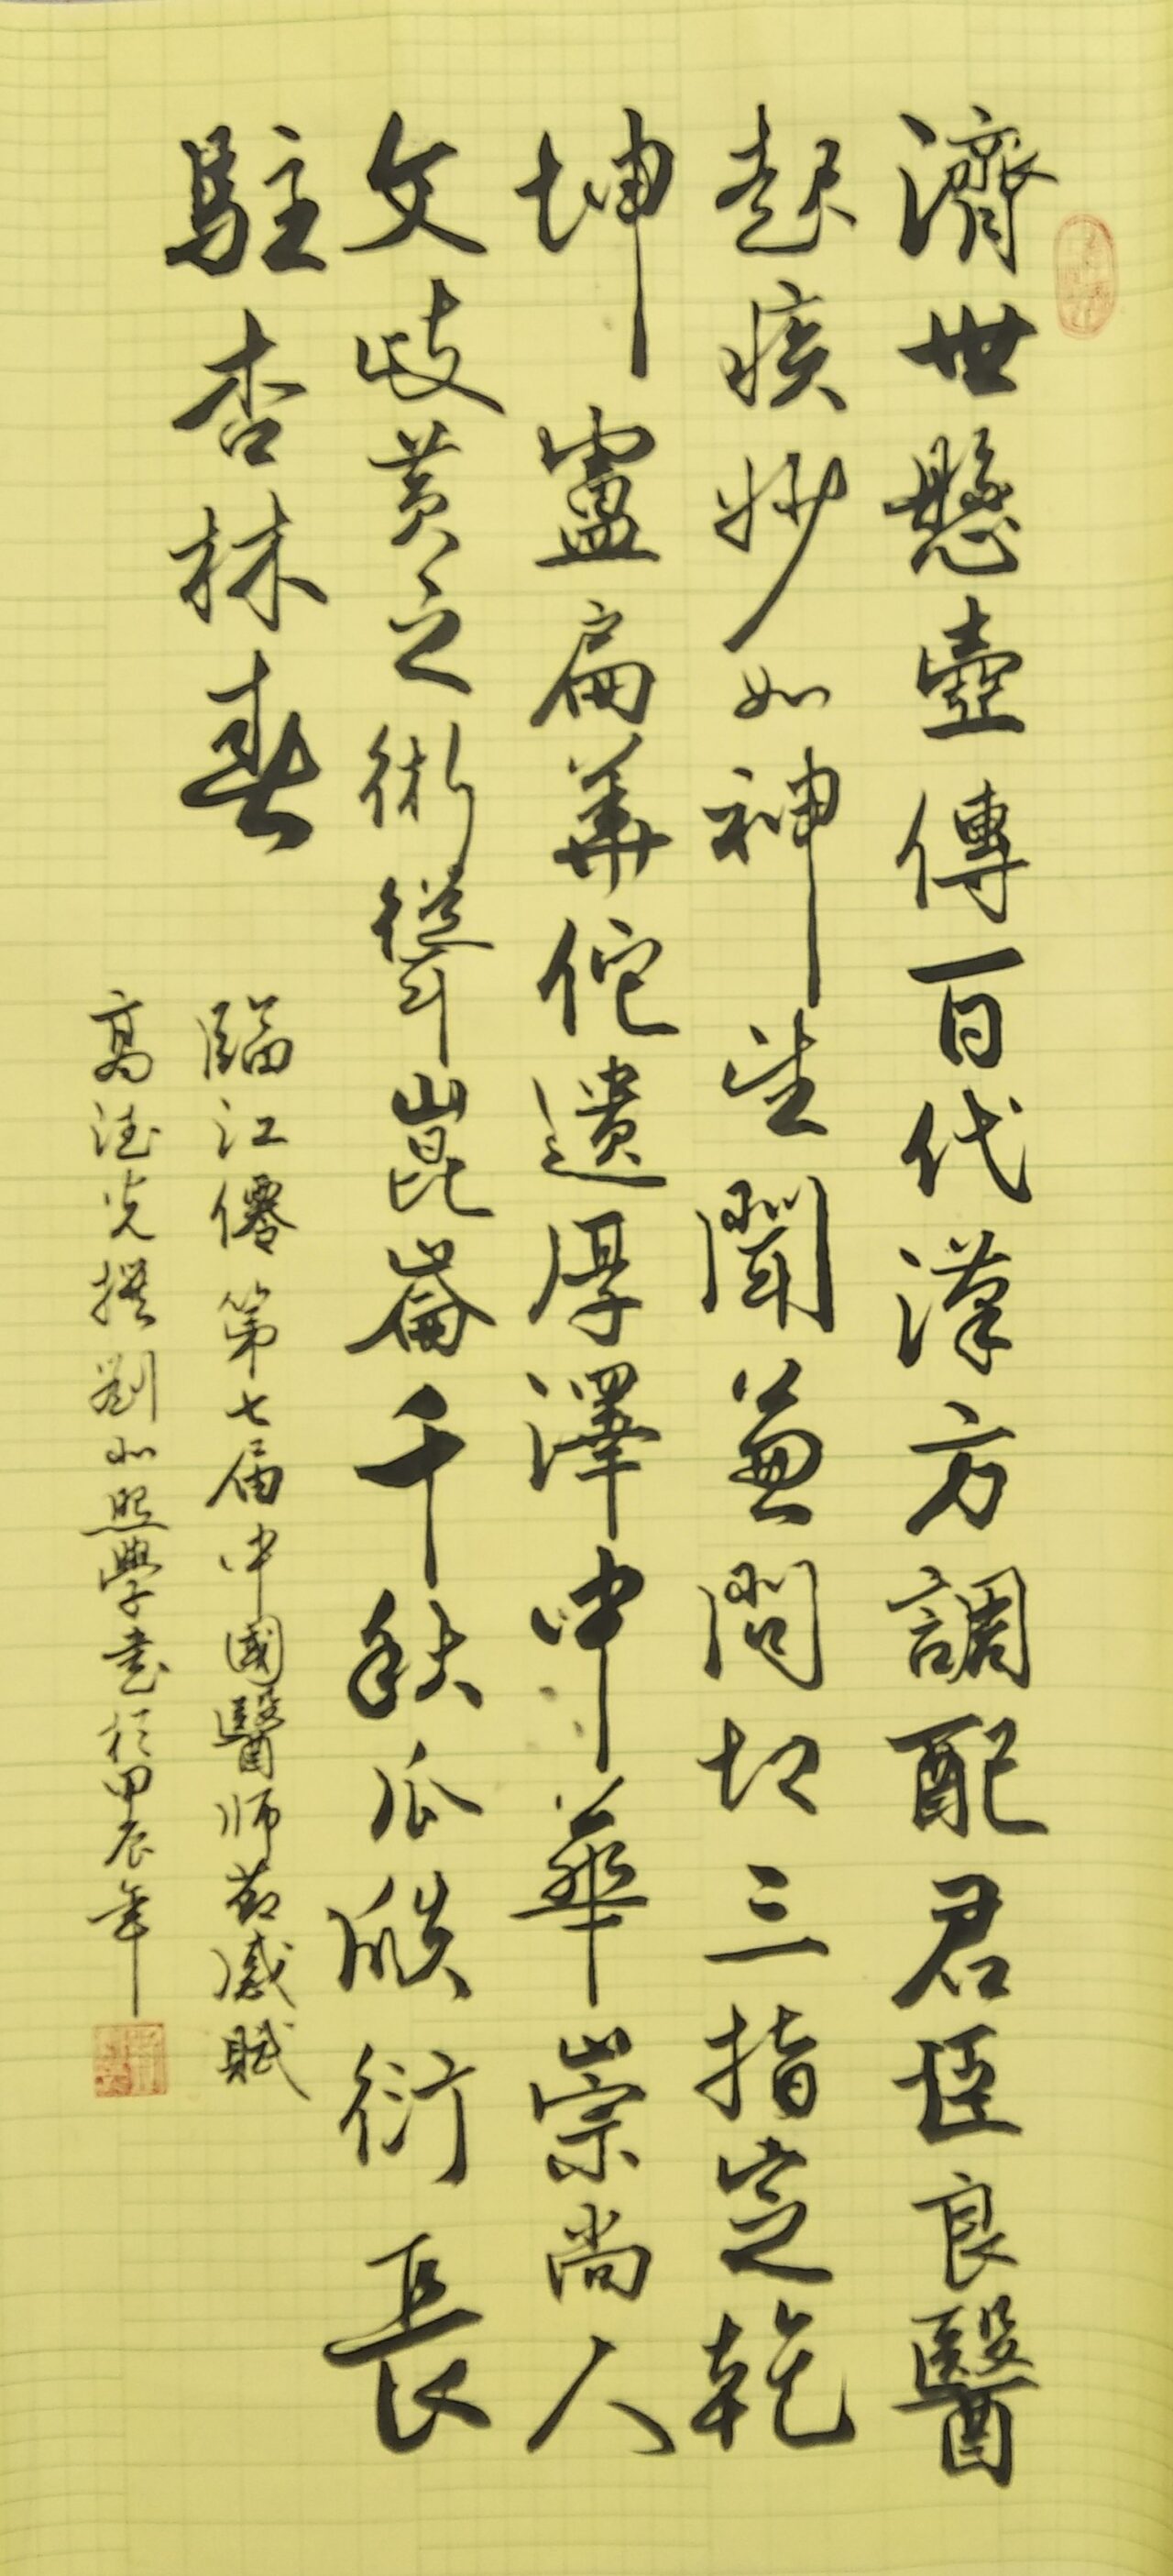 濟世懸壺傳百代漢方調配君臣良醫
起疾妙如神望聞兼問切三指定乾
坤盧扁華佗遺厚澤中華崇尚人
文歧黃之術聳崑崙千秋瓜瓞衍長
駐杏林春
臨江僊第七届中國醫師節感賦
高德光撰劉小照學書於甲辰年